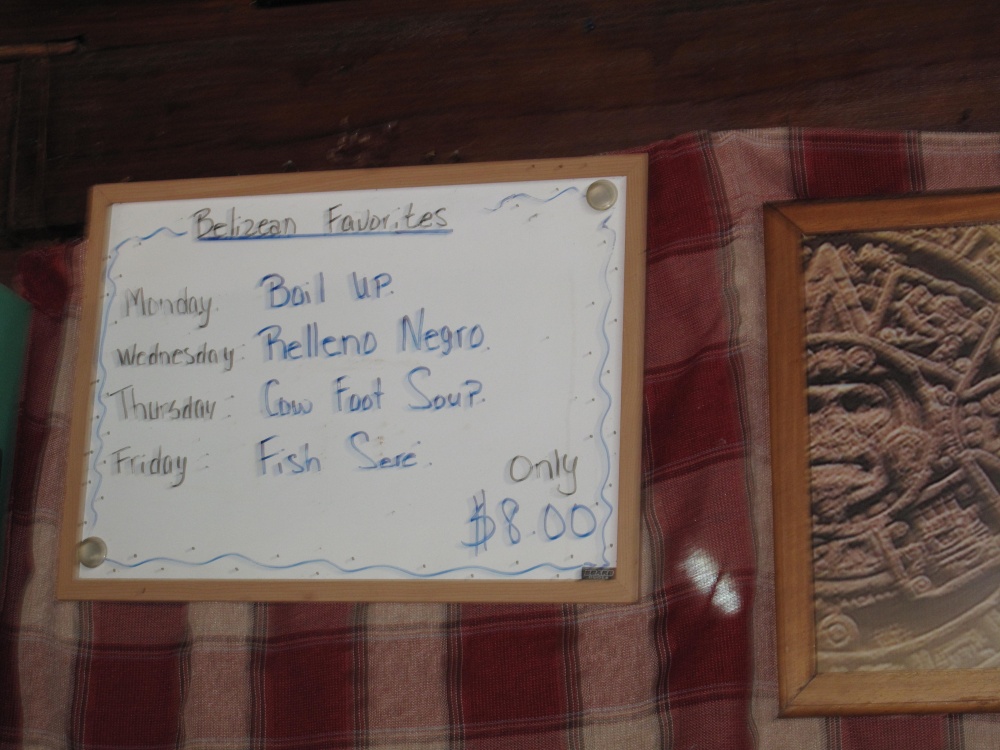 Belizean Favorites
Monday. Boil UP.
Wednesday: Relleno Negro.
Thursday: Cow Foot Soup.
Friday: Fish Sere.
Only
$8.00